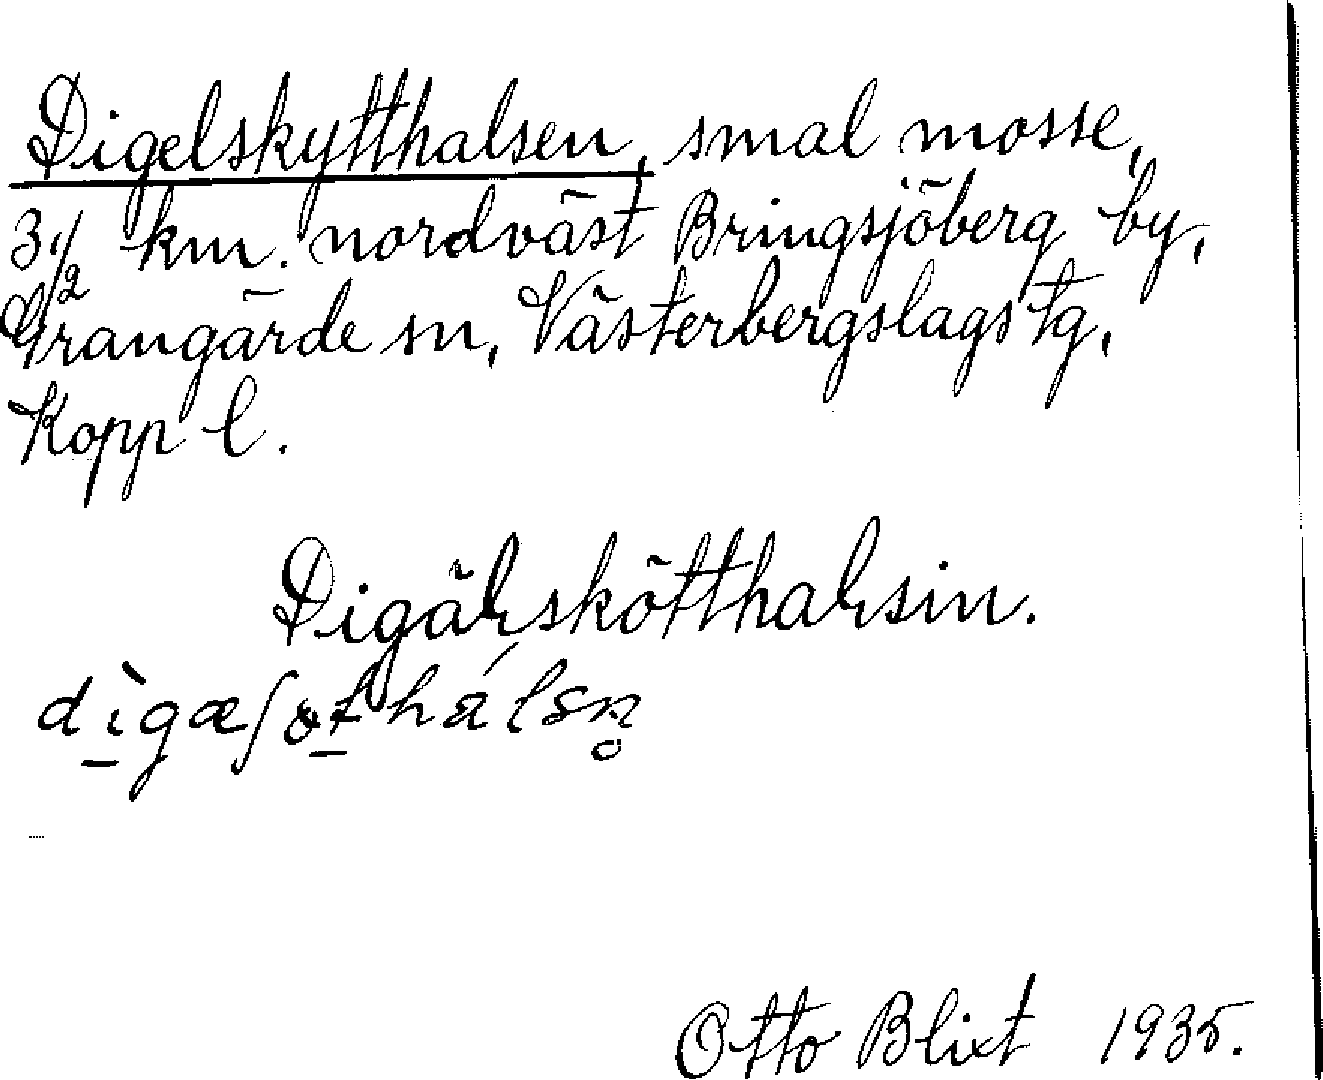 Digelskytthalsen, smal mosse,
3 1/2 km. nordväst Bringsjöberg by,
Grangärde sn, Västerbergslags tg,
Kopp l.
Digäłskötthałsin.
dìgæʃøthálsn̥
Otto Blixt 1935.